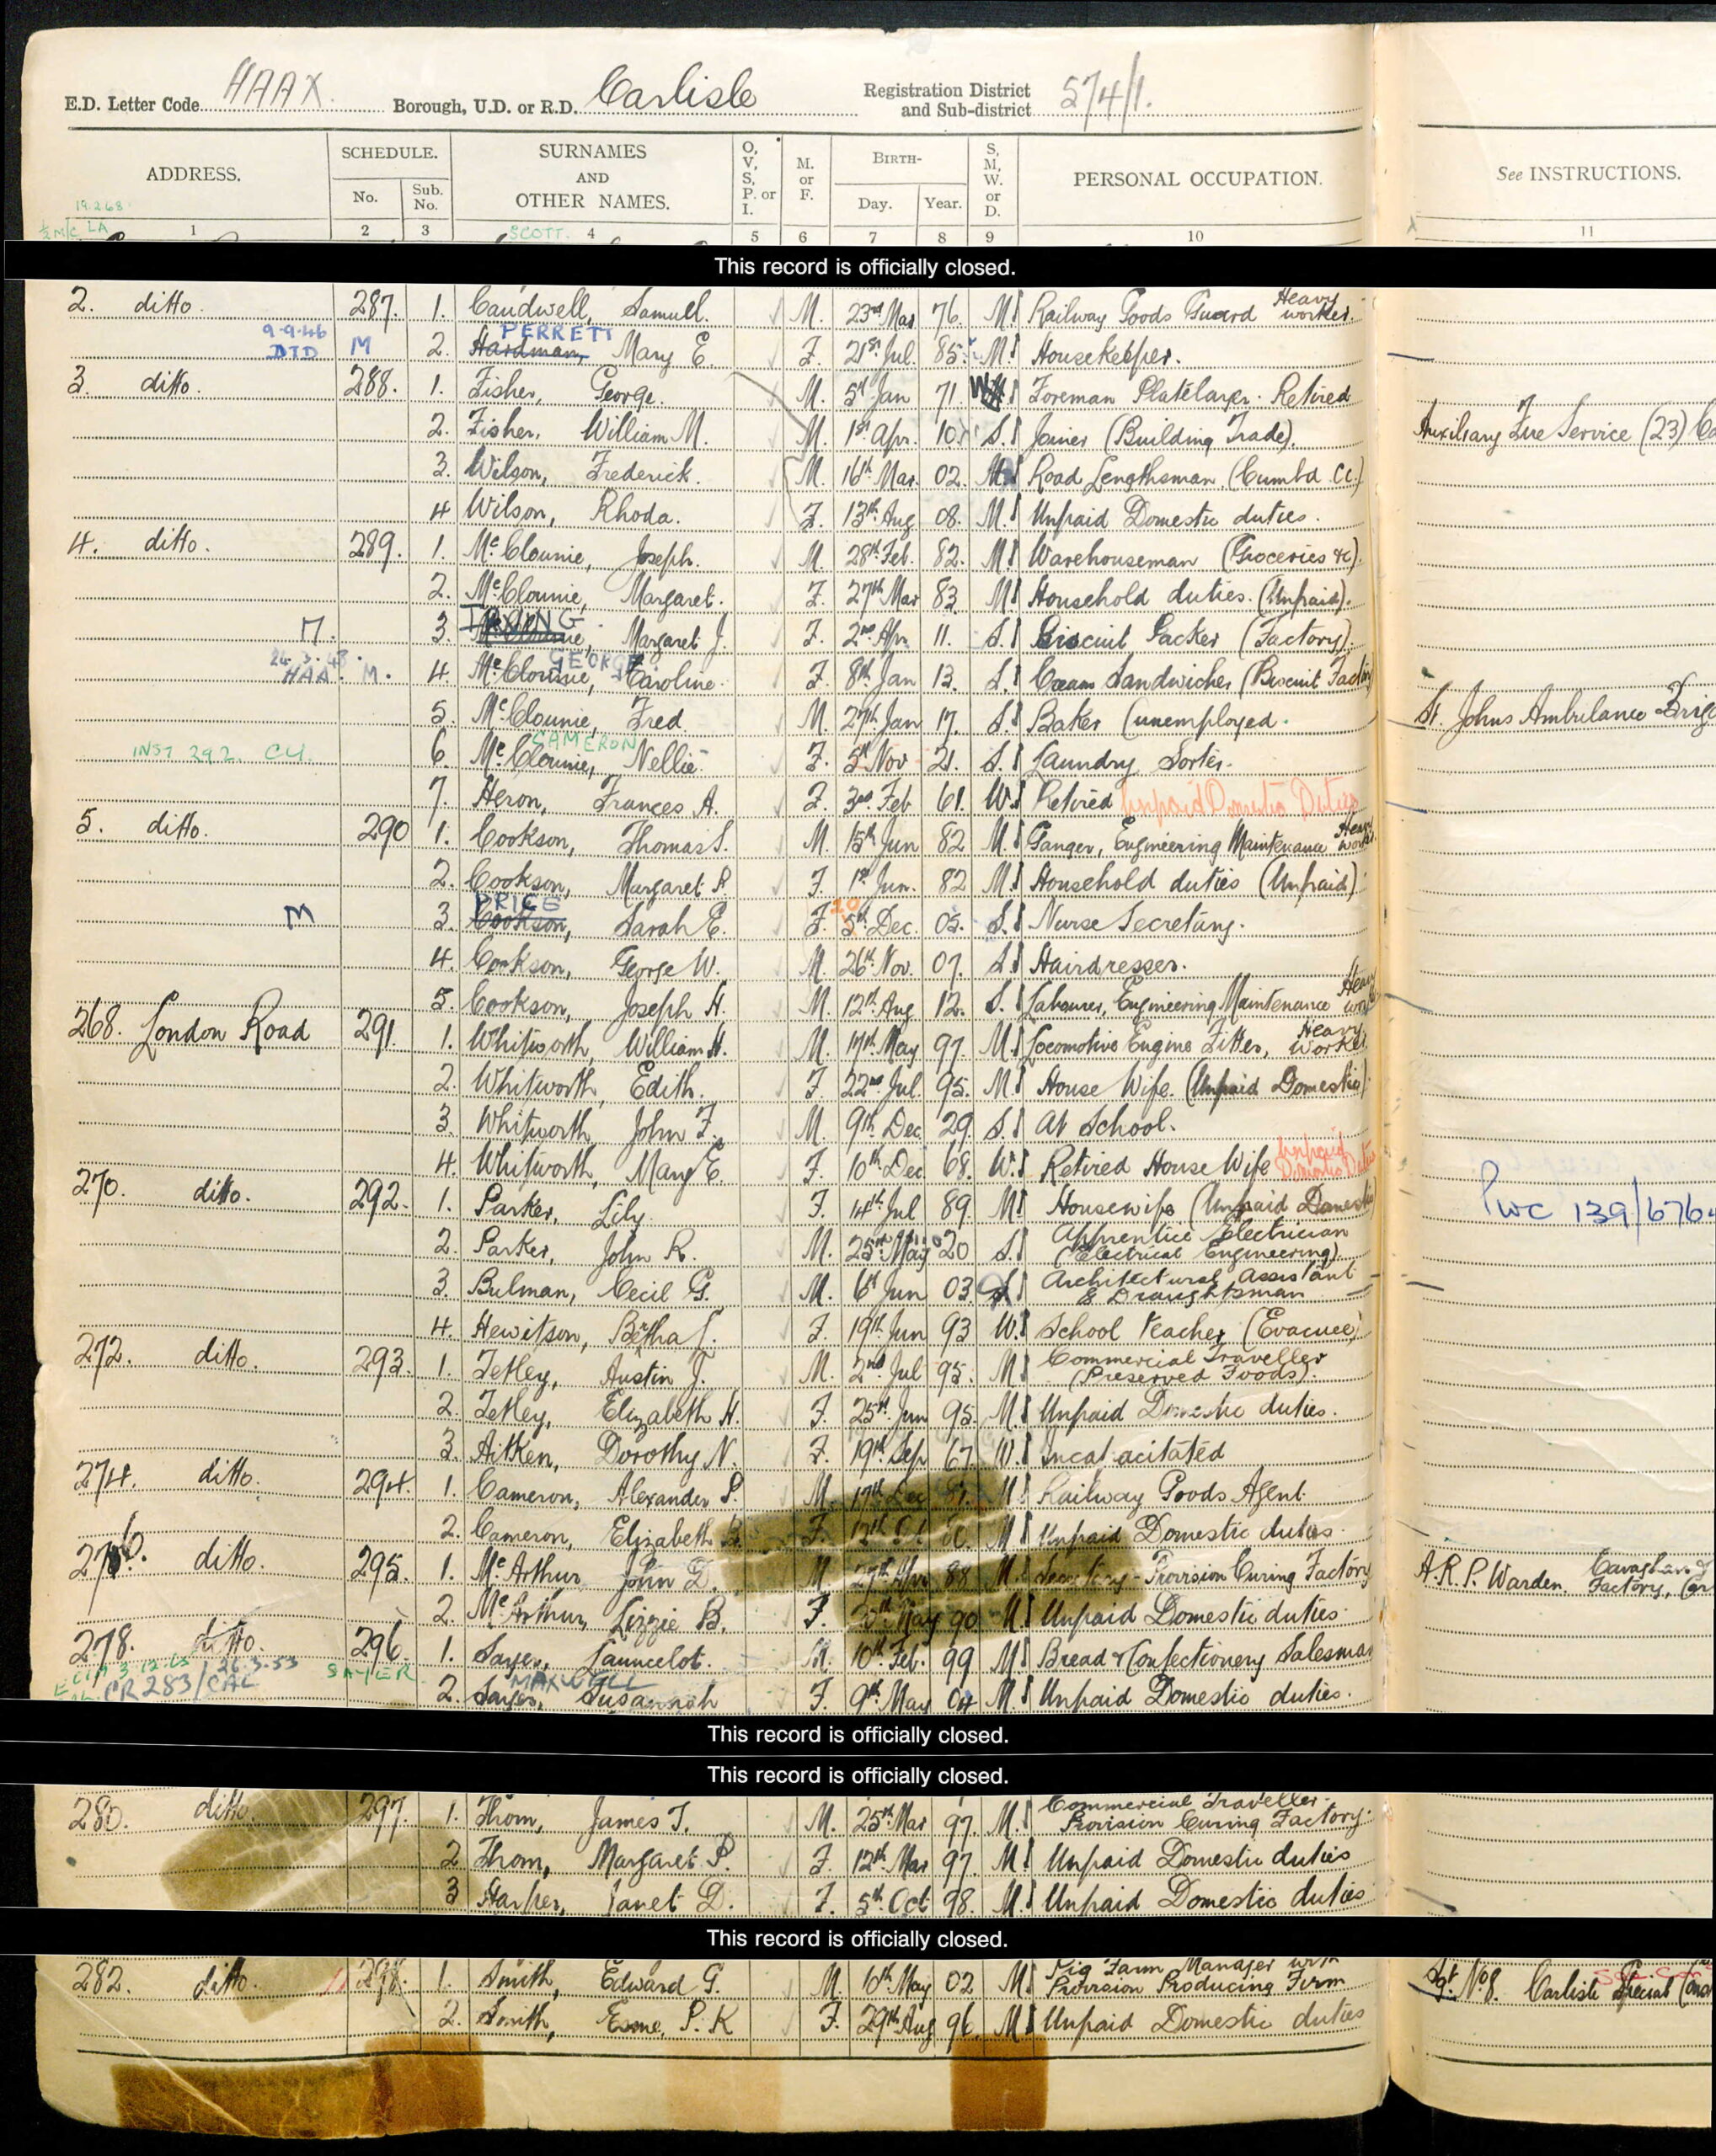 E.D. Letter Code HAAX Borough, U.D. or R.D. Carlisle Registration District and Sub-district 574/1.
ADDRESS. SCHEDULE. No. Sub. No. SURNAMES AND OTHER NAMES. O, V, S, P. or I. M. or F. BIRTH- Day. Year. S, M, W. or D. PERSONAL OCCUPATION. See INSTRUCTIONS.
19.2.68
½ M/C LA SCOTT.
1 2 3 4 5 6 7 8 9 10 11
This record is officially closed.
2. ditto. 287. 1. Caudwell, Samuel. M. 23rd Mar 76. M. Railway Goods Guard Heavy worker.
9-9-46 DTD M 2. Hardman, PERRETT Mary E. F. 21st Jul. 85. M. Housekeeper.
3. ditto. 288. 1. Fisher, George. M. 5th Jan 71. W Foreman Platelayer. Retired
2. Fisher, William M. M. 1st Apr. 10. S. Joiner (Building Trade). Auxiliary Fire Service (23)
3. Wilson, Frederick. M. 16th Mar. 02. M. Road Lengthsman. (Cumbd CC.)
4 Wilson, Rhoda. F. 13th Aug 08. M. Unpaid Domestic duties.
4. ditto. 289. 1. McClounie, Joseph. M. 28th Feb. 82. M. Warehouseman (Groceries &c).
2. McClounie, Margaret. F. 27th Mar 83. M. Household duties. (Unpaid).
M. 3. McClounie, IRVING Margaret J. F. 2nd Apr. 11. S. Biscuit Packer (Factory).
24.3.43. HAA. M. 4. McClounie, GEORGE Caroline. F. 8th Jan 13. S. Cream Sandwicher (Biscuit Factory)
5. McClounie, Fred M. 27th Jan 17. S. Baker (unemployed. St. Johns Ambulance Brig
INST 292. CU. 6. McClounie, CAMERON Nellie. F. 5th Nov 21. S. Laundry Sorter.
7. Heron, Frances A. F. 3rd Feb 61. W. Retired Unpaid Domestic Duties
5. ditto. 290 1. Cookson, Thomas S. M. 15th Jun 82 M. Ganger, Engineering Maintenance Heavy work
2. Cookson, Margaret R. F. 1st Jun. 82 M. Household duties (Unpaid).
M 3. Cookson, PRICE Sarah E. F. 20 5th Dec. 05. S. Nurse Secretary.
4. Cookson, George W. M. 26th Nov. 07. S. Hairdresser.
5. Cookson, Joseph H. M. 12th Aug 12. S. Labourer, Engineering Maintenance Heavy work
268. London Road 291. 1. Whitworth, William H. M. 17th May 97. M. Locomotive Engine Fitter, Heavy Worker
2. Whitworth, Edith. F. 22nd Jul 95. M. House Wife. (Unpaid Domestic).
3. Whitworth, John F. M. 9th Dec 29. S. At School.
4. Whitworth, Mary E. F. 10th Dec 68. W. Retired House Wife Unpaid Domestic Duties
270. ditto. 292. 1. Parker, Lily. F. 14th Jul 89. M. Housewife (Unpaid Domestic) PWC 139/676
2. Parker, John R. M. 25th May 20 S. Apprentice Electrician (Electrical Engineering).
3. Bulman, Cecil G. M. 6th Jun 03 S. Architectural Assistant & Draughtsman
4. Hewitson, Bertha F. 19th Jun 93 W. School teacher (Evacuee).
272. ditto. 293. 1. Tetley, Austin J. M. 2nd Jul 95. M. Commercial Traveller (Preserved Foods).
2. Tetley, Elizabeth H. F. 25th Jun 95. M. Unpaid Domestic duties.
3. Aitken, Dorothy N. F. 19th Sep 67. W. Incapacitated
274. ditto. 294. 1. Cameron, Alexander P. M. 17th Dec M. Railway Goods Agent.
2. Cameron, Elizabeth F. 12th M. Unpaid Domestic duties.
276. ditto. 295. 1. McArthur John D. M. 27th Apr 88 M. Secretary - Provision Curing Factory A.R.P. Warden. Factory,
2. McArthur, Lizzie B. F. May 90 M. Unpaid Domestic duties.
278. ditto. 296. 1. Sayer, Launcelot. M. 10th Feb. 99 M. Bread & Confectionery Salesman
26.3.53 CR 283/CAL SAYER 2. Sayer, MAXWELL Susannah F. 9th May 04 M. Unpaid Domestic duties.
This record is officially closed.
This record is officially closed.
280. ditto. 297. 1. Thom, James T. M. 25th Mar 97. M. Commercial Traveller - Provision Curing Factory.
2 Thom, Margaret P. F. 12th Mar 97. M. Unpaid Domestic duties
3 Harper, Janet D. F. 5th Oct 98. M. Unpaid Domestic duties
This record is officially closed.
282. ditto. 298. 1. Smith, Edward G. M. 10th May 02 M. Pig Farm Manager with Provision Producing Firm Sgt. No8. Carlisle Special
2. Smith, Esme, P. K F. 29th Aug 96. M. Unpaid Domestic duties